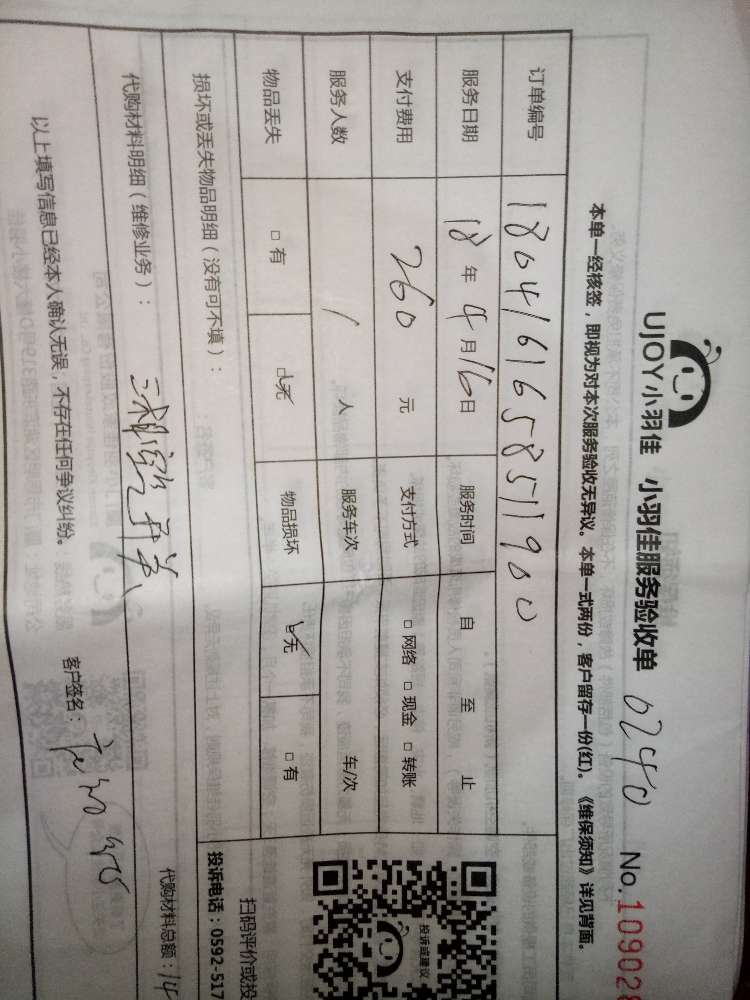 UJOY小羽佳 小羽佳服务验收单 0240 No.109028
本单一经核签，即视为对本次服务验收无异议。本单一式两份，客户留存一份(红)。《维保须知》详见背面。
订单编号 1804161658511900
服务日期 18年4月16日 服务时间 自 至 止
支付费用 260 元 支付方式 □网络 □现金 □转账
服务人数 1 人 服务车次 车/次
物品丢失 □有 □无 物品损坏 □无 □有
损坏或丢失物品明细（没有可不填）：
扫码评价或投
投诉或建议
投诉电话：0592-517
代购材料明细（维修业务）：
代购材料总额：14
以上填写信息已经本人确认无误，不存在任何争议纠纷。
客户签名：